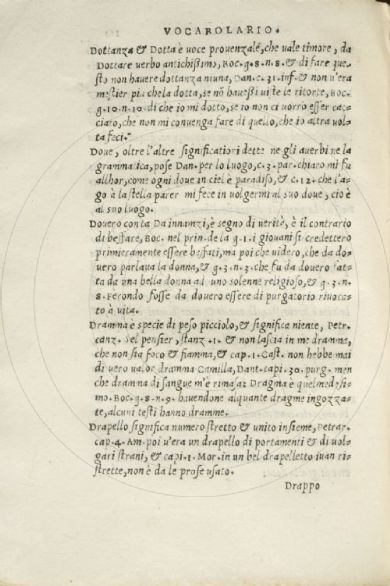 VOCABOLARIO.
Dottanza & Dotta è voce prouenzale, che vale timore, da
Dottare verbo antichissimo, Boc. g. 8. n. 8. & di fare que-
sto non hauere dottanza niuna, Dan. c. 31. inf. & non v'era
mestier piu che la dotta, se nō hauessi vi te le ritorte, Boc.
g. 10. n. 10. di che io mi dotto, se io non ci vorrò esser cac-
ciato, che non mi conuenga fare di quello, che io altra vol-
ta feci.
Doue, oltre l'altre significationi dette ne gli auerbi ne la
grammatica, pose Dan. per lo luogo, c. 3. par. chiaro mi fu
allhor, come ogni doue in ciel è paradiso, & c. 12. che l'a-
go à la stella parer mi fece in volgermi al suo doue, cioè
al suo luogo.
Douero conta Da innanzi, è segno di verità, è il contrario
di beffare, Boc. nel prin. de la g. 1. i giouani si credettero
primieramente essere beffati, ma poi che videro, che da do-
uero parlaua la donna, & g. 3. n. 3. che fu da douero fat-
ta da vna bella donna al uno solenne religioso, & g. 3. n.
8. Ferondo fosse da douero essere di purgatorio riuoca-
to à vita.
Dramma è specie di peso picciolo, & significa niente, Petr.
canz. Sel pensier, stanz. 1. & non lascia in me dramma,
che non sia foco & fiamma, & cap. 1. Cast. non hebbe mai
di vero valor dramma Camilla, Dant. capi. 30. purg. men
che dramma di sangue m'è rimasa: Dragma è quel medesi-
mo. Boc. g. 8. n. 9. hauendone alquante dragme ingozza-
te, alcuni testi hanno dramme.
Drapello significa numero stretto & vnito insieme, Petrar.
cap. 4. Am. poi v'era un drapello di portamenti & di vol-
gari strani, & capi. 1. Mor. in un bel drapelletto iuan ri-
strette, non è da le prose usato.
Drappo